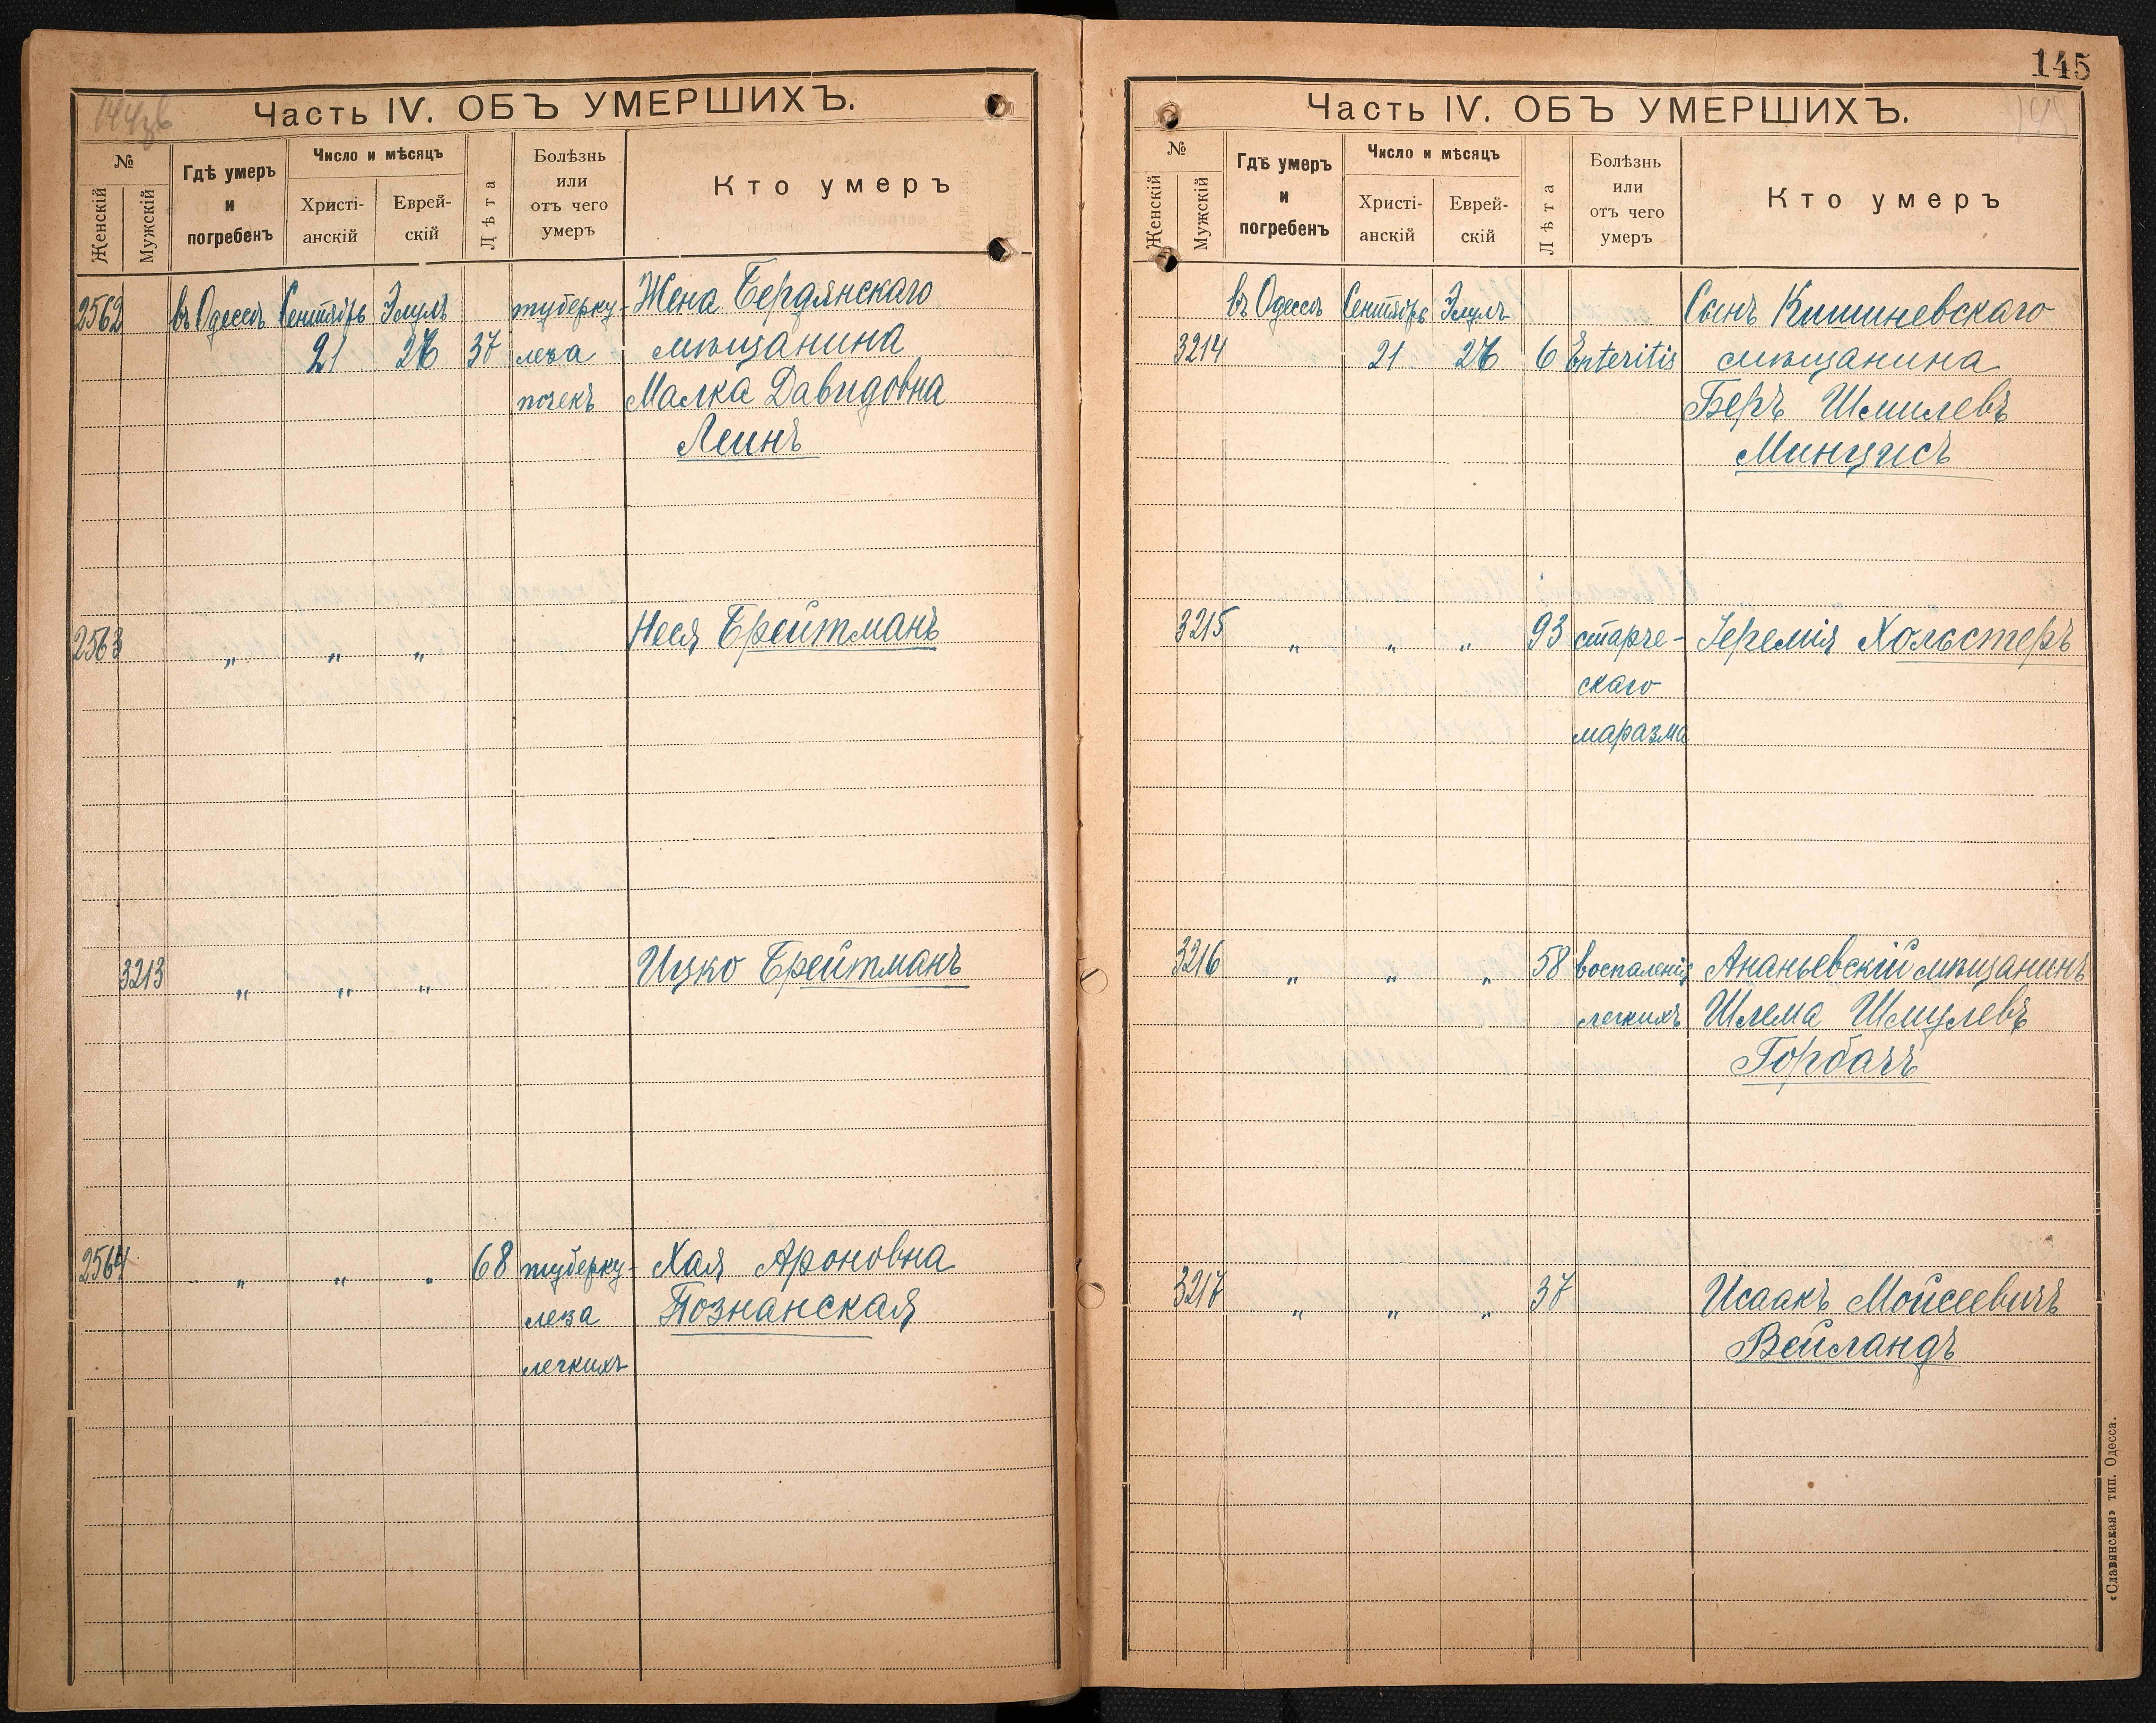 Часть IV. ОБЪ УМЕРШИХЪ.
№
Женскій
Мужскій
Гдѣ умеръ и погребенъ
Число и мѣсяцъ
Христі-анскій
Еврей-скій
Лѣта
Болѣзнь или отъ чего умеръ
Кто умеръ
2562 въ Одессѣ Сентябрь Элулъ туберку- Жена Бердянскаго
21 26 37 леза мѣщанина
почекъ Малка Давидовна
Леинъ
2563 „ „ „ Неся Брейтманъ
3213 „ „ „ Ицко Брейтманъ
2564 „ „ „ 68 туберку- Хая Ароновна
леза Познанская
легкихъ
145
Часть IV. ОБЪ УМЕРШИХЪ.
145
№
Женскій
Мужскій
Гдѣ умеръ и погребенъ
Число и мѣсяцъ
Христі-анскій
Еврей-скій
Лѣта
Болѣзнь или отъ чего умеръ
Кто умеръ
въ Одессѣ Сентябрь Элулъ Сынъ Кишиневскаго
3214 21 26 6 Enteritis мѣщанина
Беръ Шмилевъ
Минцисъ
3215 „ „ „ 93 старче- Іеремія Хольстеръ
скаго
маразма
3216 „ „ „ 58 воспаленія Ананьевскій мѣщанинъ
легкихъ Шлема Шмулевъ
Горбачъ
3217 „ „ „ 37 Исаакъ Мойсеевичъ
Вейландъ
«Славянская» тип. Одесса.